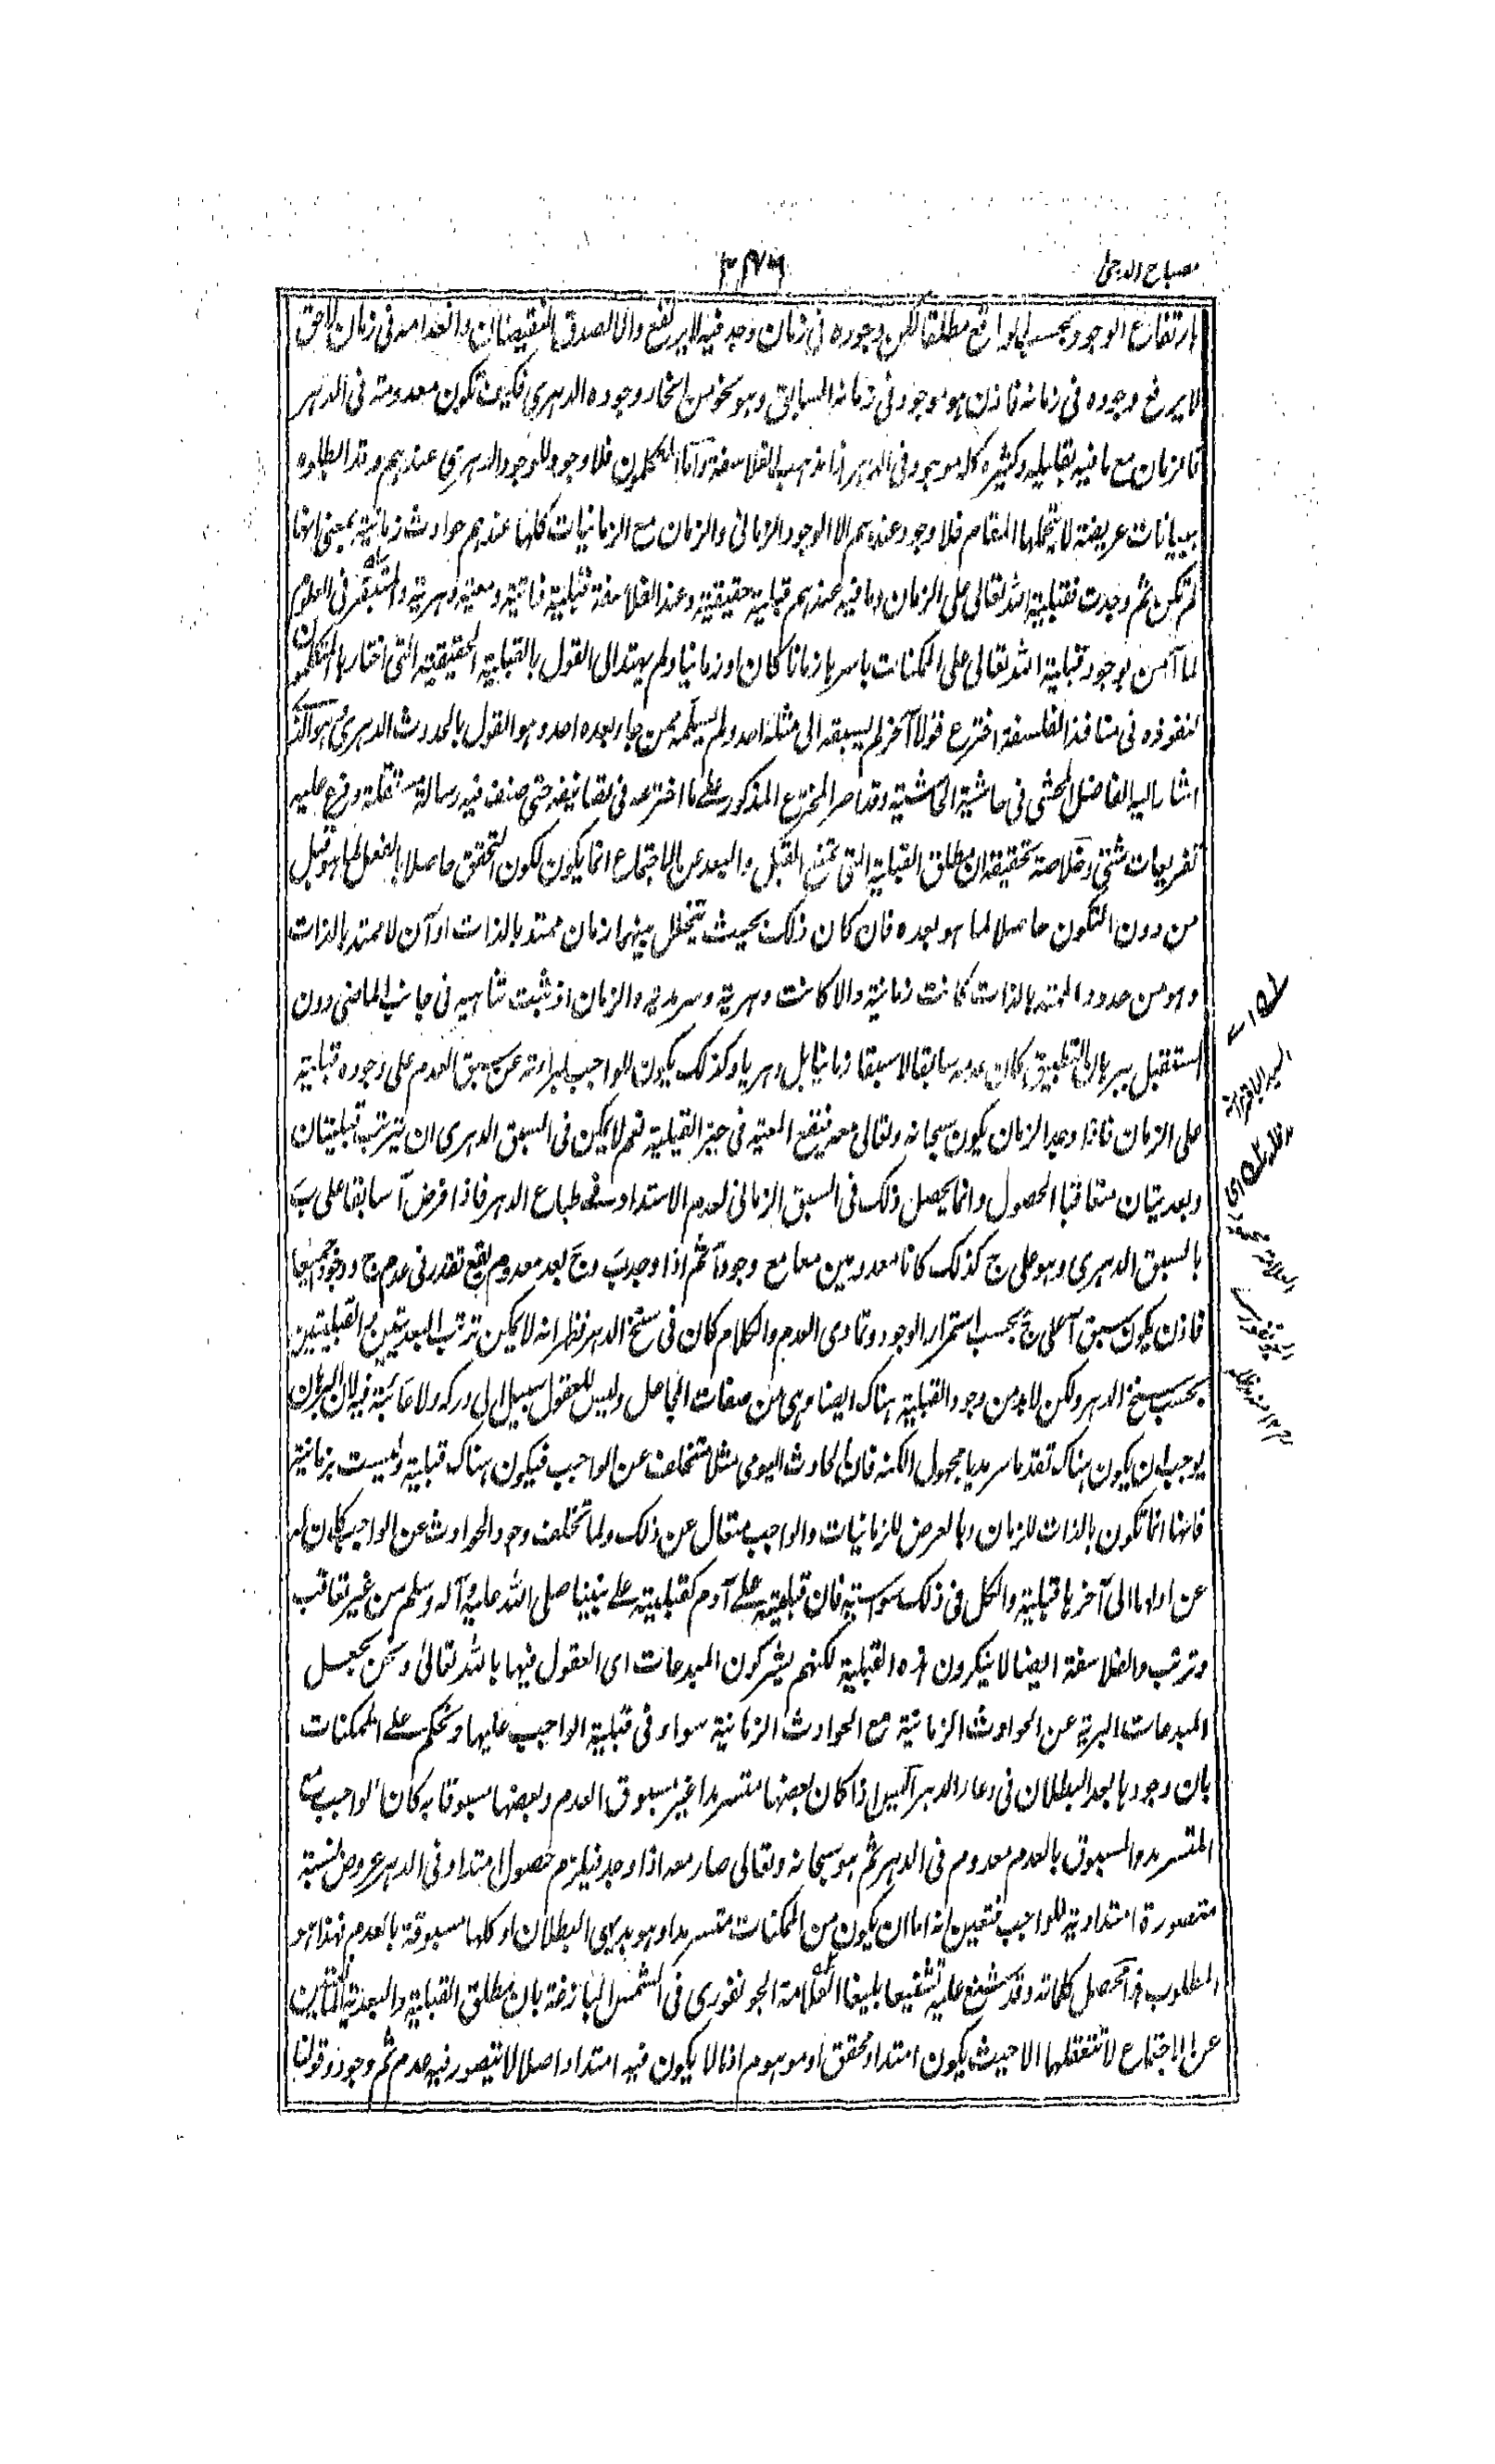 مصباح الدجى
٢٧٦
بارتفاع الوجود بحسب الواقع مطلقا لكن وجوده في زمان وجد فيه لا يرتفع والا لصدق النقيضان وانعدامه في زمان لاحق
لا يرفع وجوده في زمانه فاذن هو موجود في زمانه السابق وهو نحو من انحاء وجوده الدهري فكيف تكون معدومة في الدهر
فالزمان مع ما فيه بقليله وكثيره كله موجود في الدهر هذا مذهب الفلاسفة وآما المتكلمون فلا وجود للوجود الدهري عندهم وقد ابطلوه
ببيانات عريضة لا يتحملها المقام فلا وجود عندهم الا الوجود الزماني والزمان مع الزمانيات كلها عندهم حوادث زمانية بمعنى انها
لم تكن ثم وجدت فقبلية الله تعالى على الزمان وما فيه عندهم قبلية حقيقية وعند الفلاسفة قبلية ذاتية ومعية دهرية والمتبقر في العلوم
لما آمن بوجود قبلية الله تعالى على الممكنات باسرها زمانا كان او زمانيا ولم يهتد الى القول بالقبلية الحقيقية التي اختارها المتكلمون
لنفوذه في منافذ الفلسفة اخترع قولا آخر لم يسبقه الى مثله احد ولم يسلمه ممن جاء بعده احد وهو القول بالحدوث الدهري وهو الذي
اشار اليه الفاضل المحشي في حاشية الحاشية وقد اصر المخترع المذكور على ما اخترعه في تصانيفه حتى صنف فيه رسالة مستقلة وفرع عليه
تفريعات شتى وخلاصة تحقيقه ان مطلق القبلية التي تمنع القبل والبعد عن الاجتماع انما يكون لكون التحقق حاصلا بالفعل لما هو قبل
من دون التكون حاصلا لما هو بعده فان كان ذلك بحيث يتخلل بينهما زمان ممتد بالذات او آن لا ممتد بالذات
وهو من حدود الممتد بالذات كانت زمانية والا كانت دهرية وسرمدية والزمان اذ ثبت تناهيه في جانب الماضي دون
المستقبل ببرهان التطبيق كان عدمه سابقا لا سبقا زمانيا بل دهريا وكذلك يكون للواجب لبراءته عن سبق العدم على وجوده قبلية
على الزمان فاذا وجد الزمان يكون سبحانه وتعالى معه فتقع المعية في حيز القبلية نعم لا يمكن في السبق الدهري ان تترتب قبليتان
وبعديتان متعاقبا الحصول وانما يحصل ذلك في السبق الزماني لعدم الامتداد في طباع الدهر فاذا فرض آ سابقا على ب
بالسبق الدهري وهو على ج كذلك كانا معدومين معا مع وجود آ ثم اذا وجد ب وج بعد معدوم يقع تقدر في عدم ج ووجود جميعا
فاذن يكون سبق آ على ج بحسب استمرار الوجود وتمادي العدم والكلام كان في سنخ الدهر فظهر انه لا يمكن ترتب البعديتين والقبليتين
بحسب سنخ الدهر ولكن لابد من وجود القبلية هناك ايضا وهي من صفات الجاعل وليس للعقول سبيل الى دركه ولا غائبة فيه لان البرهان
يوجب ان يكون هناك تقدما سرمديا مجهول الكنه فان الحادث اليومي مثلا متخلف عن الواجب فيكون هناك قبلية وليست بزمانية
فانها انما تكون بالذات للزمان وبالعرض للزمانيات والواجب متعال عن ذلك ولما تخلف وجود الحوادث عن الواجب كان له
عن اولها الى آخرها قبلية والكل في ذلك سواسية فان قبليته على آدم كقبليته على نبينا صلى الله عليه وآله وسلم من غير تعاقب
وترتب والفلاسفة ايضا لا ينكرون هذه القبلية لكنهم يشركون المبدعات اى العقول فيها بالله تعالى ونحن نجعل
المبدعات البرية عن الحوادث الزمانية مع الحوادث الزمانية سواء في قبلية الواجب عليها ونحكم على الممكنات
بان وجودها بعد البطلان في وعاء الدهر اليس اذا كان بعضها متسرمدا غير مسبوق العدم وبعضها مسبوقا به كان الواجب مع
المتسرمد والمسبوق بالعدم معدوم في الدهر ثم هو سبحانه وتعالى صار معه اذا وجد فيلزم حصول امتداد في الدهر وعروض نسبة
متصورة امتدادية للواجب فتعين انه اما ان يكون من الممكنات متسرمدا وهو بديهي البطلان او كلها مسبوقة بالعدم فهذا هو
المطلوب هذا محصل كلماته وقد شنع عليه تشنيعا بليغا العلامة الجونفوري في الشمس البازغة بان مطلق القبلية والبعدية المانعتين
عن الاجتماع لا نتعقلها الا حيث يكون امتداد محقق او موهوم اذ ما لا يكون فيه امتداد اصلا لا يتصور فيه عدم ثم وجود وقولنا
السيد الباقر